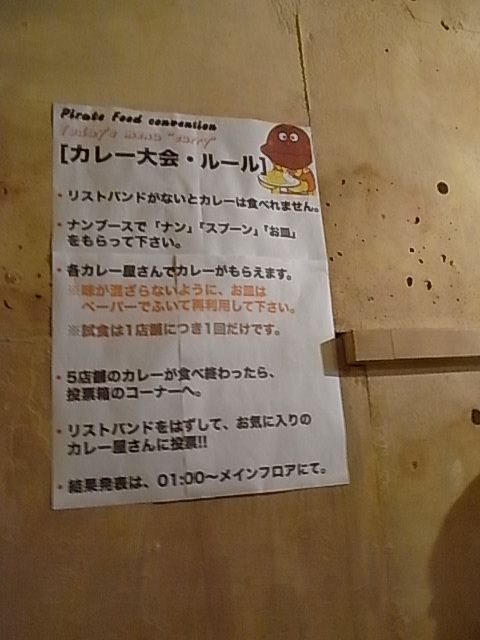 Pirate Food convention
Today's menu "curry"
[カレー大会・ルール]
・リストバンドがないとカレーは食べれません。
・ナンブースで「ナン」「スプーン」「お皿」
をもらって下さい。
・各カレー屋さんでカレーがもらえます。
※味が混ざらないように、お皿は
ペーパーでふいて再利用して下さい。
※試食は1店舗につき1回だけです。
・5店舗のカレーが食べ終わったら、
投票箱のコーナーへ。
・リストバンドをはずして、お気に入りの
カレー屋さんに投票!!
・結果発表は、01:00〜メインフロアにて。